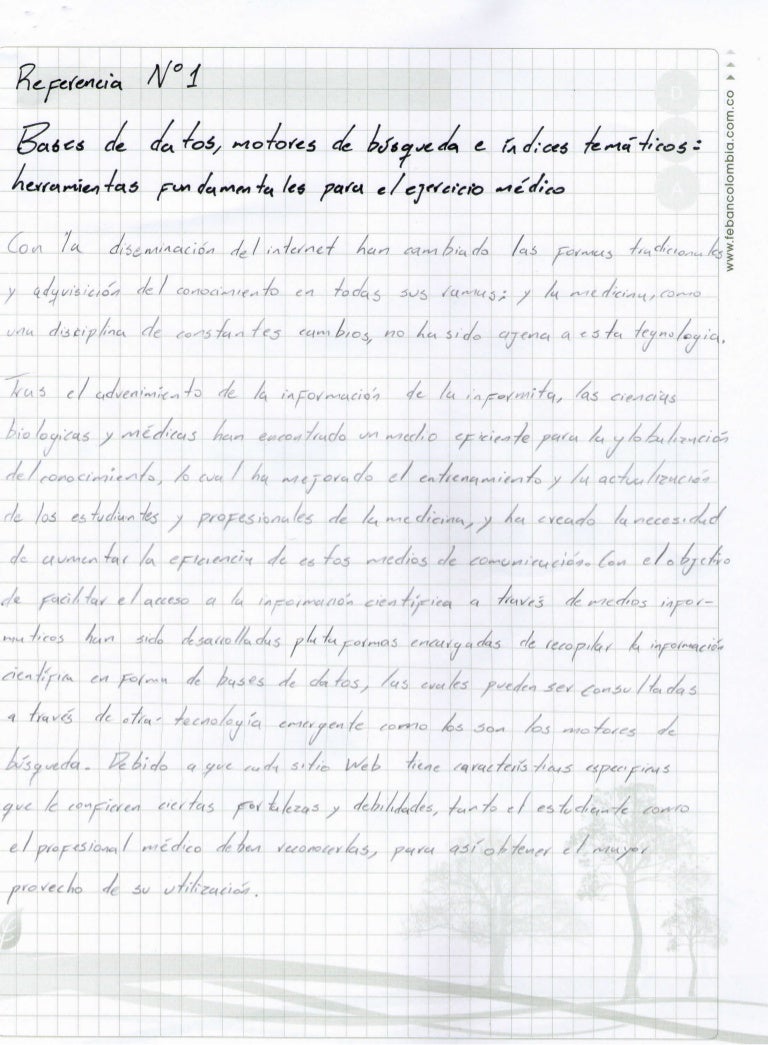 Referencia Nº 1
Bases de datos, motores de búsqueda e índices temáticos:
herramientas fundamentales para el ejercicio médico
Con la diseminación del internet han cambiado las formas tradicionales
y adquisición del conocimiento en todas sus ramas; y la medicina, como
una disciplina de constantes cambios, no ha sido ajena a esta tegnologia.
Tras el advenimiento de la información de la informita, las ciencias
biologicas y médicas han encontrado un medio eficiente para la globalización
del conocimiento, lo cual ha mejorado el entrenamiento y la actualización
de los estudiantes y profesionales de la medicina, y ha creado la necesidad
de aumentar la eficiencia de estos medios de comunicación. Con el objetivo
de facilitar el acceso a la información científica a través de medios infor-
maticos han sido desarrolladas plataformas encargadas de recopilar la información
científica en forma de bases de datos, las cuales pueden ser consultadas
a través de otra tecnología emergente como los son los motores de
búsqueda. Debido a que cada sitio Web tiene características especificas
que le confieren ciertas fortalezas y debilidades, tanto el estudiante como
el profesional médico deben reconocerlas, para así obtener el mayor
provecho de su utilización.
www.tebancolombia.com.co
D
A